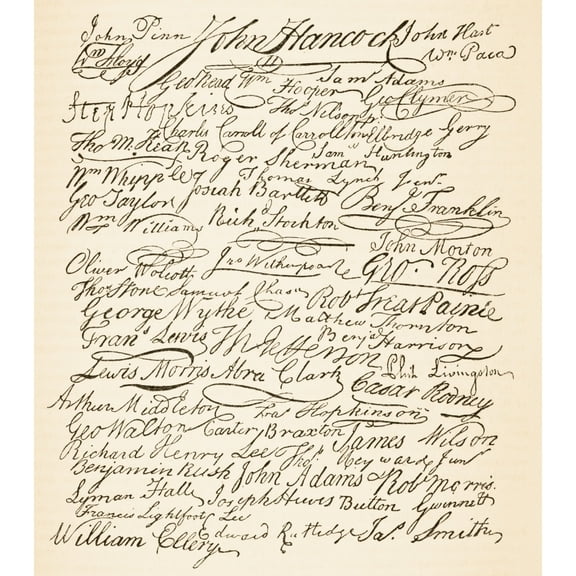 John Pinn John Hancock John Hart
Wm Floyd Wm Paca
Geo Read Wm Hooper Saml Adams
Geo Clymer
Step Hopkins Thos Nelson jr.
Charles Carroll of Carrollton Elbridge Gerry
Tho M. Kean Roger Sherman Saml Huntington
Wm Whipple Josiah Bartlett Thomas Lynch Junr.
Geo Taylon Benj Franklin
Wm Williams Richd Stockton
John Morton
Oliver Wolcott Jno Witherspoon Geo. Ross
Thos Stone Samuel Chase Robt Treat Paine
George Wythe Matthew Thornton
Frans Lewis Th Jefferson Benj Harrison
Lewis Morris Abra Clark Phil. Livingston
Caesar Rodney
Arthur Middleton Fras Hopkinson
Geo Walton Carter Braxton James Wilson
Richard Henry Lee Thos Heyward Junr
Benjamin Rush John Adams Rob Morris.
Lyman Hall Joseph Hewes Button Gwinnett
Francis Lightfoot Lee
William Ellery Edward Rutledge Jas. Smith